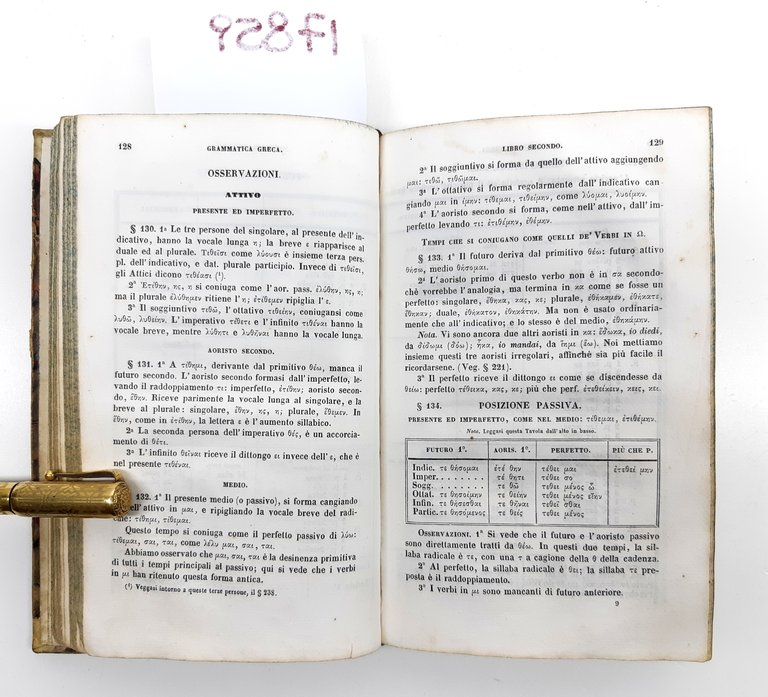 17856
128
GRAMMATICA GRECA.
OSSERVAZIONI.
ATTIVO
PRESENTE ED IMPERFETTO.
§ 130. 1ª Le tre persone del singolare, al presente dell'in-
dicativo, hanno la vocale lunga η; la breve ε riapparisce al
duale ed al plurale. Τιθεῖσι come λύουσι è insieme terza pers.
pl. dell'indicativo, e dat. plurale participio. Invece di τιθεῖσι,
gli Attici dicono τιθέασι (¹).
2ª Ἐτίθην, ης, η si coniuga come l'aor. pass. ἐλύθην, ης, η;
ma il plurale ἐλύθημεν ritiene l'η; ἐτίθεμεν ripiglia l'ε.
3ª Il soggiuntivo τιθῶ, l'ottativo τιθείην, coniugansi come
λυθῶ, λυθείην. L'imperativo τίθετι e l'infinito τιθέναι hanno la
vocale breve, mentre λύθητι e λυθῆναι hanno la vocale lunga.
AORISTO SECONDO.
§ 131. 1ª A τίθημι, derivante dal primitivo θέω, manca il
futuro secondo. L'aoristo secondo formasi dall'imperfetto, le-
vando il raddoppiamento τι: imperfetto, ἐτίθην; aoristo secon-
do, ἔθην. Riceve parimente la vocale lunga al singolare, e la
breve al plurale: singolare, ἔθην, ης, η; plurale, ἔθεμεν. In
ἔθην, come in ἐτίθην, la lettera ε è l'aumento sillabico.
2ª La seconda persona dell'imperativo θές, è un accorcia-
mento di θέτι.
3ª L'infinito θεῖναι riceve il dittongo ει invece dell'ε, che è
nel presente τιθέναι.
MEDIO.
132. 1ª Il presente medio (o passivo), si forma cangiando
dell'attivo in μαι, e ripigliando la vocale breve del radi-
cale: τίθημι, τίθεμαι.
Questo tempo si coniuga come il perfetto passivo di λύω:
τίθεμαι, σαι, ται, come λέλυ μαι, σαι, ται.
Abbiamo osservato che μαι, σαι, ται è la desinenza primitiva
di tutti i tempi principali al passivo; qui si vede che i verbi
in μι han ritenuto questa forma antica.
(¹) Veggasi intorno a queste terze persone, il § 238.
LIBRO SECONDO.
129
2ª Il soggiuntivo si forma da quello dell'attivo aggiungendo
μαι: τιθῶ, τιθῶμαι.
3ª L'ottativo si forma regolarmente dall'indicativo can-
giando μαι in ίμην: τίθεμαι, τιθείμην, come λύομαι, λυοίμην.
4ª L'aoristo secondo si forma, come nell'attivo, dall'im-
perfetto levando τι: ἐτιθέμην, ἐθέμην.
TEMPI CHE SI CONIUGANO COME QUELLI DE' VERBI IN Ω.
§ 133. 1ª Il futuro deriva dal primitivo θέω: futuro attivo
θήσω, medio θήσομαι.
2ª L'aoristo primo di questo verbo non è in σα secondo-
chè vorrebbe l'analogia, ma termina in κα come se fosse un
perfetto: singolare, ἔθηκα, κας, κε; plurale, ἐθήκαμεν, ἐθήκατε,
ἔθηκαν; duale, ἐθήκατον, ἐθηκάτην. Ma non è usato ordinaria-
mente che all'indicativo; e lo stesso è del medio, ἐθηκάμην.
Nota. Vi sono ancora due altri aoristi in κα: ἔδωκα, io diedi,
da δίδωμι (δόω); ἧκα, io mandai, da ἵημι (ἕω). Noi mettiamo
insieme questi tre aoristi irregolari, affinchè sia più facile il
ricordarsene. (Veg. § 221).
3ª Il perfetto riceve il dittongo ει come se discendesse da
θείω: perfetto τέθεικα, κας, κε; più che perf. ἐτεθείκειν, κεις, κει.
§ 134. POSIZIONE PASSIVA.
PRESENTE ED IMPERFETTO, COME NEL MEDIO: τίθεμαι, ἐτιθέμην.
Nota. Leggasi questa Tavola dall'alto in basso.
FUTURO 1º. AORIS. 1º. PERFETTO. PIÙ CHE P.
Indic. τε θήσομαι ἐτέ θην τέθει μαι ἐτεθεί μην
Imper. . . . . . . . τέ θητι τέθει σο
Sogg. . . . . . . . τε θῶ τέθει μένος ὦ
Ottat. τε θησοίμην τε θείην τέθει μένος εἴην
Infin. τε θήσεσθαι τε θῆναι τεθεῖ σθαι
Partic. τε θησόμενος τε θείς τέθει μένος
OSSERVAZIONI. 1ª Si vede che il futuro e l'aoristo passivo
sono direttamente tratti da θέω. In questi due tempi, la sil-
laba radicale è τε, con una τ a cagione della θ della cadenza.
2ª Al perfetto, la sillaba radicale è θει; la sillaba τε pre-
posta è il raddoppiamento.
3ª I verbi in μι sono mancanti di futuro anteriore.
9